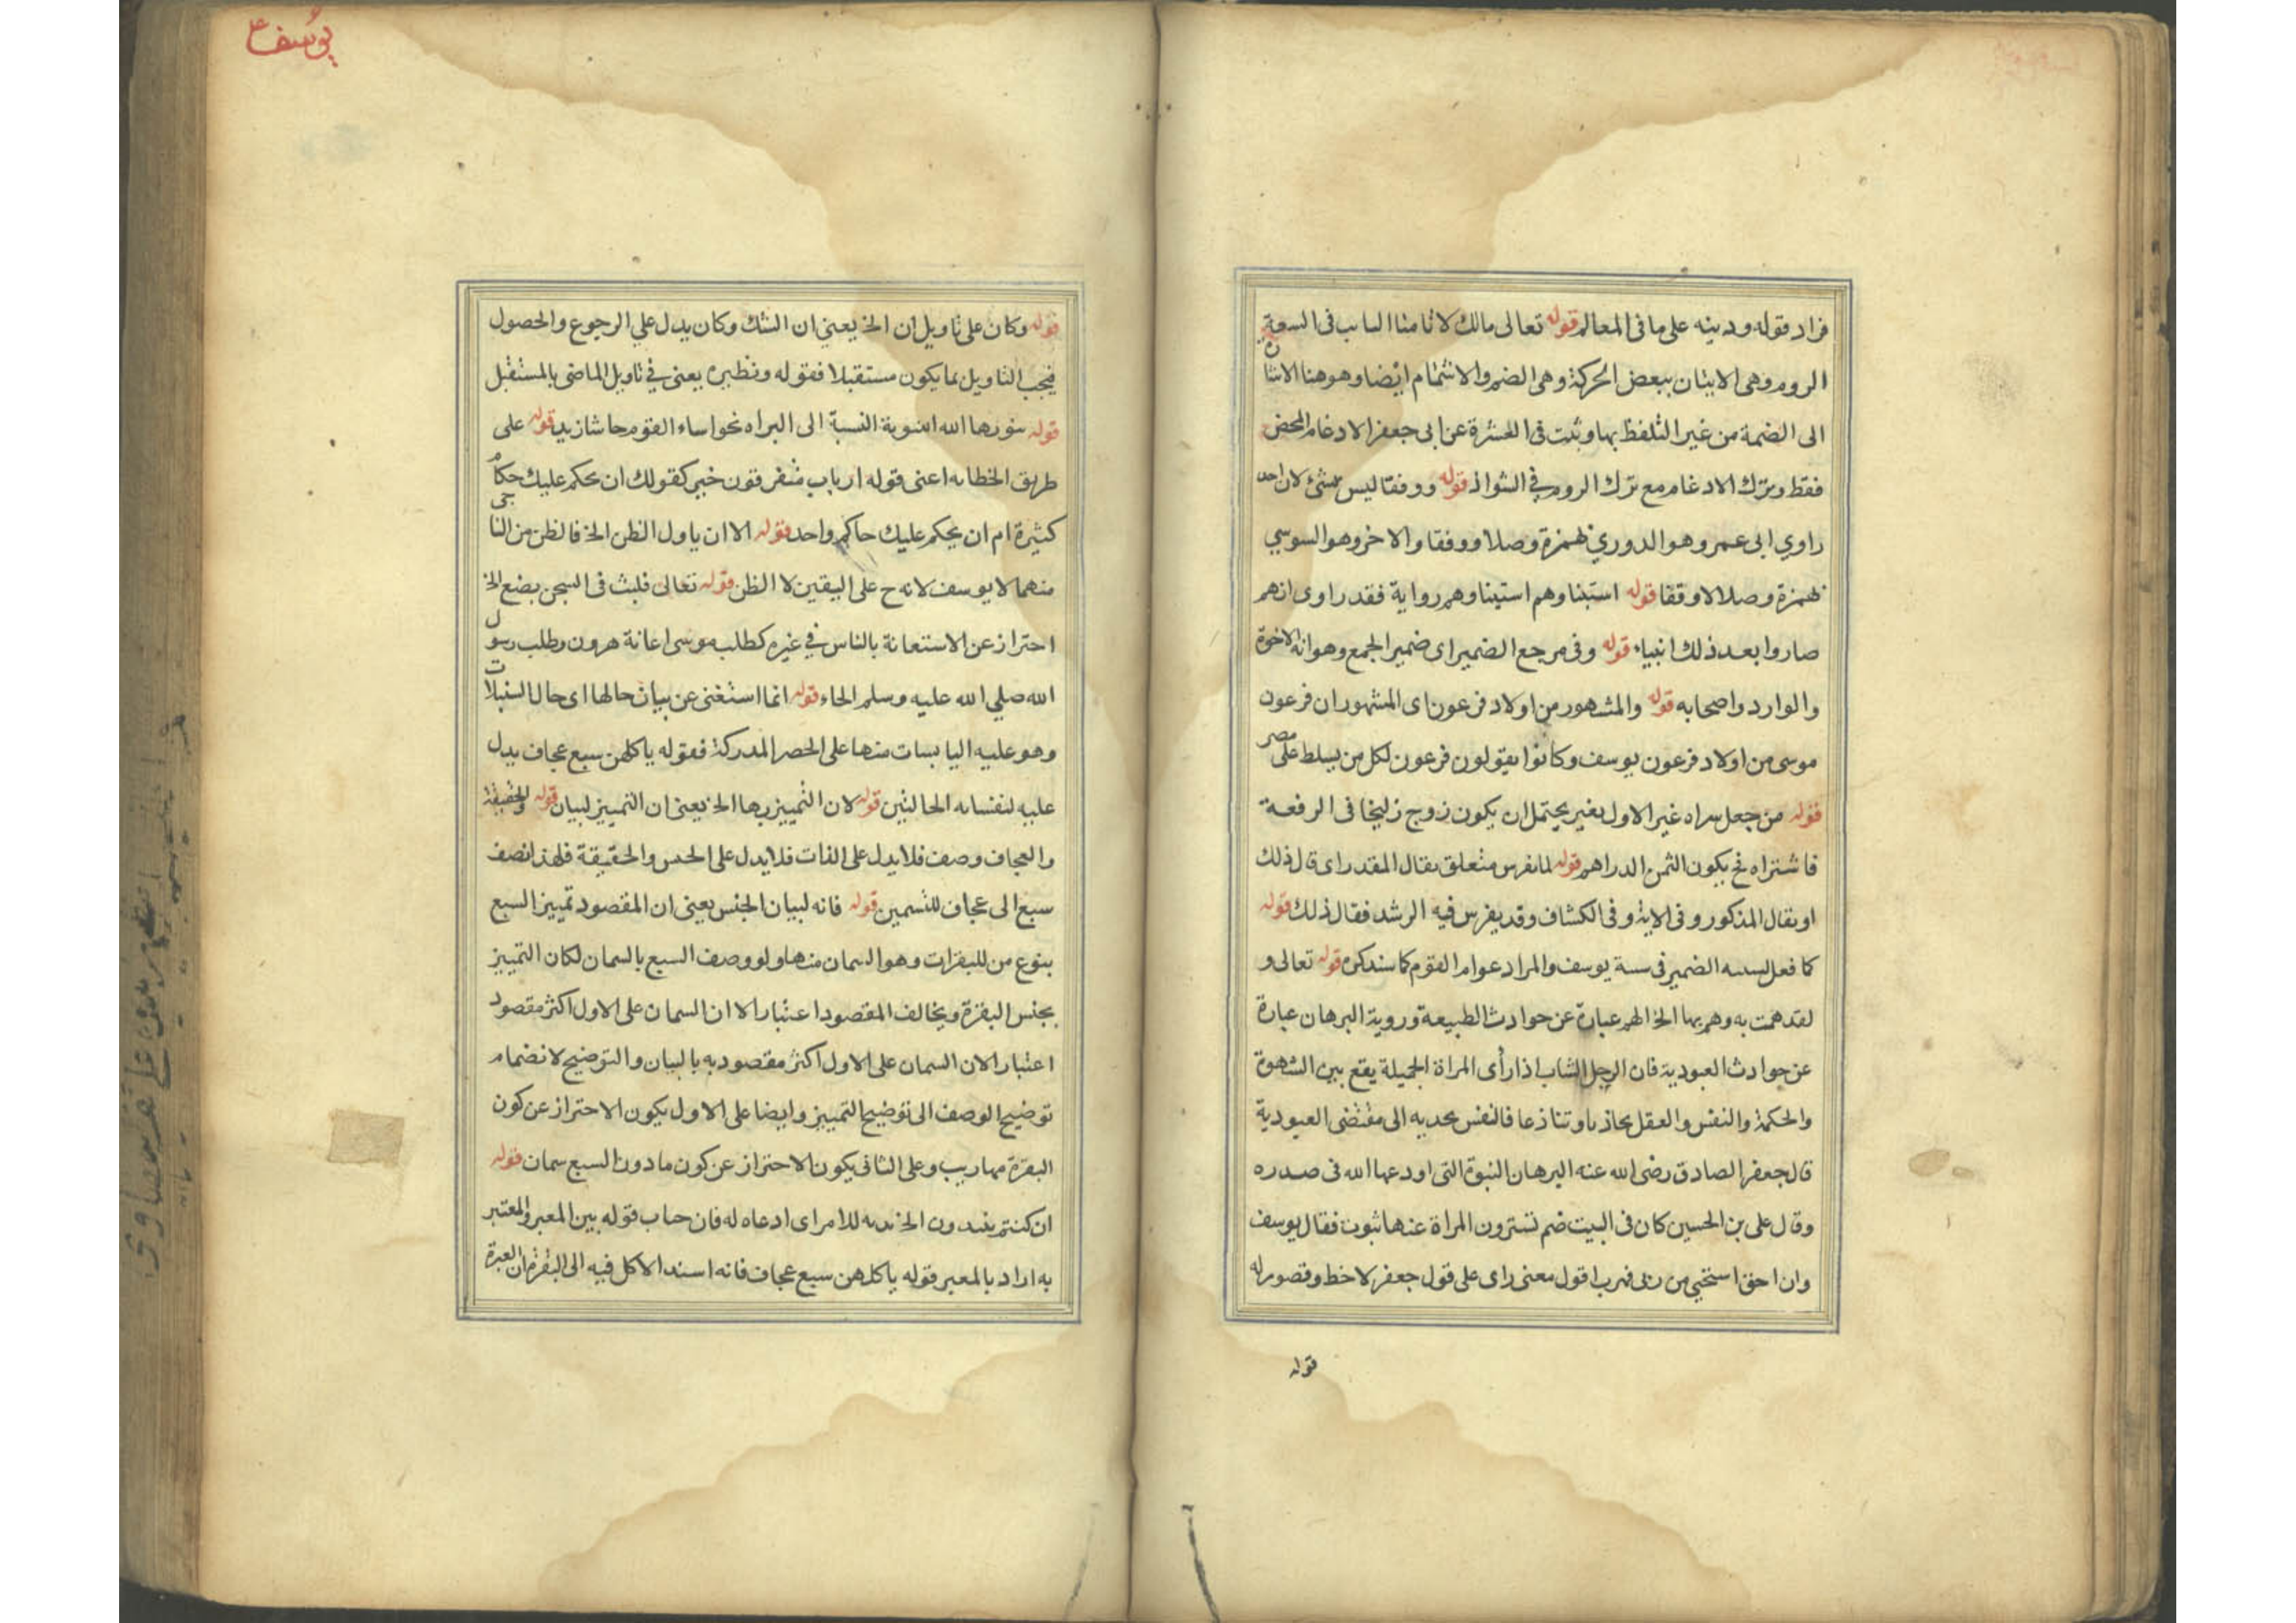 فزاد قوله ودينه على ما فى المعالم قوله تعالى مالك لا تامنا فى السبعة
الروم وهى الاتيان ببعض الحركة وهى الضم والاشمام ايضا وهو هنا الاتيان
الى الضمة من غير التلفظ بها وثبت فى العشرة عن ابى جعفر الادغام المحض
فقط وترك الادغام مع ترك الروم فى الشواذ قوله ووقفا ليس بشئ لان احد
راوي ابى عمرو وهو الدوري بهمزة وصلا ووقفا والاخر وهو السوسي
بهمزة وصلا لا وقفا قوله استبنا وهم استبنا وهم رواية فقد راوى انهم
صاروا بعد ذلك انبياء قوله وفى مرجع الضمير اى ضمير الجمع وهو انه الاخوة
والوارد واصحابه قوله والمشهور من اولاد فرعون اى المشهور ان فرعون
موسى من اولاد فرعون يوسف وكانوا يقولون فرعون لكل من يسلط على مصر
قوله من جعل شراه غير الاول بغير يحتمل ان يكون زوج زليخا فى الرفعة
فاشتراه فح يكون الثمن الدراهم قوله لما تفرس متعلق بقال المقدر اى قال ذلك
او بقال المذكور وفى الاية وفى الكشاف وقد يفرس فيه الرشد فقال ذلك قوله
كما فعل الضمير فى يوسف والمراد عوام القوم كما سنذكره قوله تعالى و
لقد همت به وهم بها الخ الهم عبارة عن حوادث الطبيعة وروية البرهان عبارة
عن حوادث العبودية فان الرجل الشاب اذا رأى المراة الجميلة يقع بين الشهوة
والحكمة والنفس والعقل تجاذبا وتنازعا فالنفس يجذبه الى مقتضى العبودية
قال جعفر الصادق رضى الله عنه البرهان النبوة التى اودعها الله فى صدره
وقال على بن الحسين كان فى البيت صنم تسترون المراة عنها بثوب فقال يوسف
وان احق استحيي من ربى فهرب اقول معنى راى على قول جعفر لاحظ وقصور له
قوله
يوسف ع
قوله وكان على تاويل ان الخ يعنى ان الشك وكان يدل علي الرجوع والحصول
فيجب التاويل بما يكون مستقبلا فقوله ونظيره يعنى في تاويل الماضى بالمستقبل
قوله سورها الله النسبة الى البراه نحو اساء القوم حاشا زيد قوله على
طريق الخطابه اعنى قوله ارباب متفرقون خير كقولك ان يحكم عليك حكام
كثيرة ام ان يحكم عليك حاكم واحد قوله الا ان ياول الظن الخ فالظن من الناجى
منهما لا يوسف لانه ح على اليقين لا الظن قوله تعالى فلبث فى السجن بضع الخ
احتراز عن الاستعانة بالناس في غيره كطلب موسى اعانة هرون وطلب رسول
الله صلي الله عليه وسلم الحاء قوله انما استغنى عن بيان حالها اى حال السنبلات
وهو عليه اليابسات منها على الخضر المدركة فقوله ياكلهن سبع عجاف يدل
عليه الحالتين قوله لان التمييز بها الخ يعنى ان التمييز لبيان قوله والحقيقة
والعجاف وصف فلا يدل على الذات فلا يدل على الجنس والحقيقة فلهذا نصف
سبع الى عجاف للتسمين قوله فانه لبيان الجنس يعنى ان المقصود تمييز السبع
بنوع من للبقرات وهو السمان منها ولو وصف السبع بالسمان لكان التمييز
بجنس البقرة ويخالف المقصود اعتبارا الا ان السمان على الاول اكثر مقصود
اعتبارا لان السمان على الاول اكثر مقصود به بالبيان والتوضيح لانضمام
توضيح الوصف الى توضيح التمييز وايضا على الاول يكون الاحتراز عن كون
البقرة مهاريب وعلى الثانى يكون الاحتراز عن كون ما دون السبع سمان قوله
ان كنتم الخ للامر اى ادعاه له فان حاب قوله بين المعبر والمعتبر
به اراد بالمعبر قوله ياكلهن سبع عجاف فانه اسند الاكل فيه الى البقرة ان العبرة